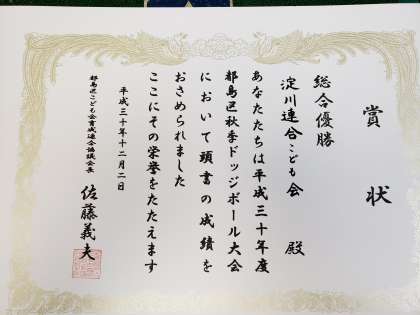 賞状
総合優勝
淀川連合こども会 殿
あなたたちは平成三十年度
都島区秋季ドッジボール大会
において頭書の成績を
おさめられました
ここにその栄誉をたたえます
平成三十年十二月二日
都島区こども会育成連合協議会会長
佐藤義夫